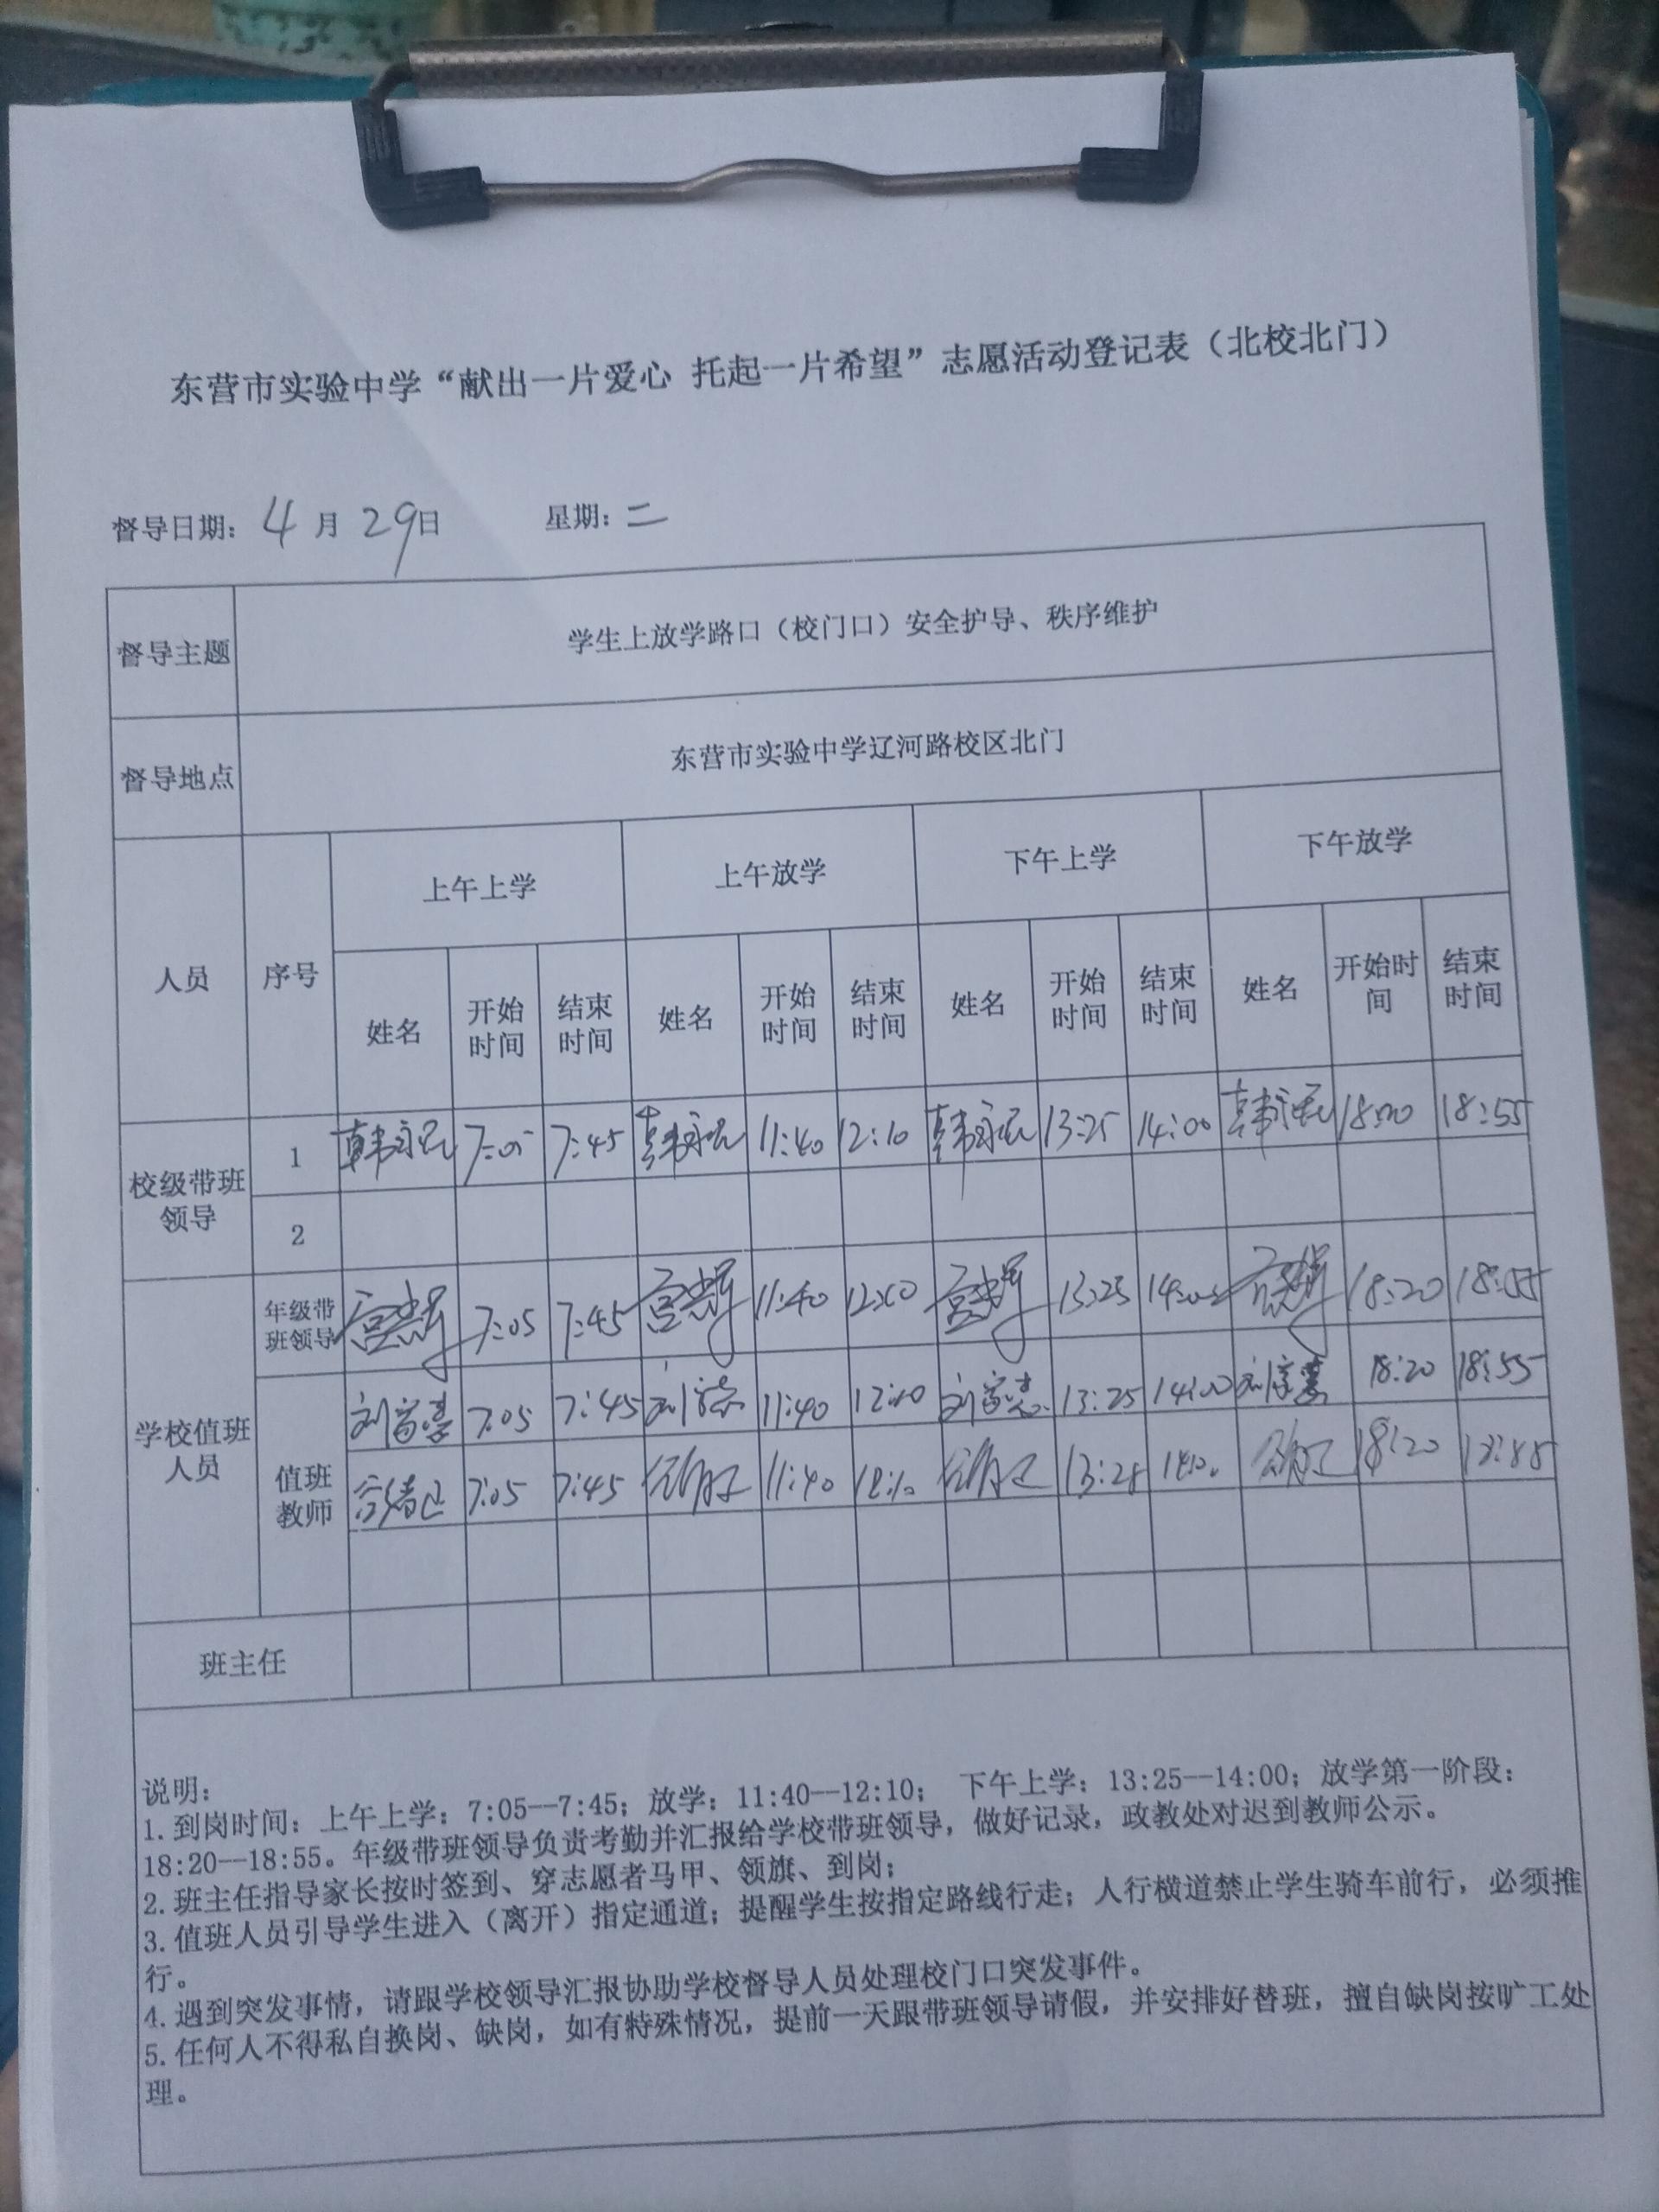 东营市实验中学“献出一片爱心 托起一片希望”志愿活动登记表（北校北门）
督导日期: 4 月 29日 星期: 二
督导主题 学生上放学路口（校门口）安全护导、秩序维护
督导地点 东营市实验中学辽河路校区北门
人员 序号 上午上学 上午放学 下午上学 下午放学
姓名 开始时间 结束时间 姓名 开始时间 结束时间 姓名 开始时间 结束时间 姓名 开始时间 结束时间
校级带班领导 1 7:05 7:45 11:40 12:10 13:25 14:00 18:55
2
学校值班人员 年级带班领导 7:05 7:45 11:40 13:25 18:20 18:55
值班教师 7:05 7:45 11:40 12:10 13:25 14:00 18:20 18:55
7:05 7:45 11:40 18:20
班主任
说明:
1.到岗时间: 上午上学: 7:05—7:45; 放学: 11:40—12:10; 下午上学: 13:25—14:00; 放学第一阶段:
18:20—18:55。年级带班领导负责考勤并汇报给学校带班领导，做好记录，政教处对迟到教师公示。
2.班主任指导家长按时签到、穿志愿者马甲、领旗、到岗;
3.值班人员引导学生进入（离开）指定通道; 提醒学生按指定路线行走; 人行横道禁止学生骑车前行，必须推
行。
4.遇到突发事情，请跟学校领导汇报协助学校督导人员处理校门口突发事件。
5.任何人不得私自换岗、缺岗，如有特殊情况，提前一天跟带班领导请假，并安排好替班，擅自缺岗按旷工处
理。